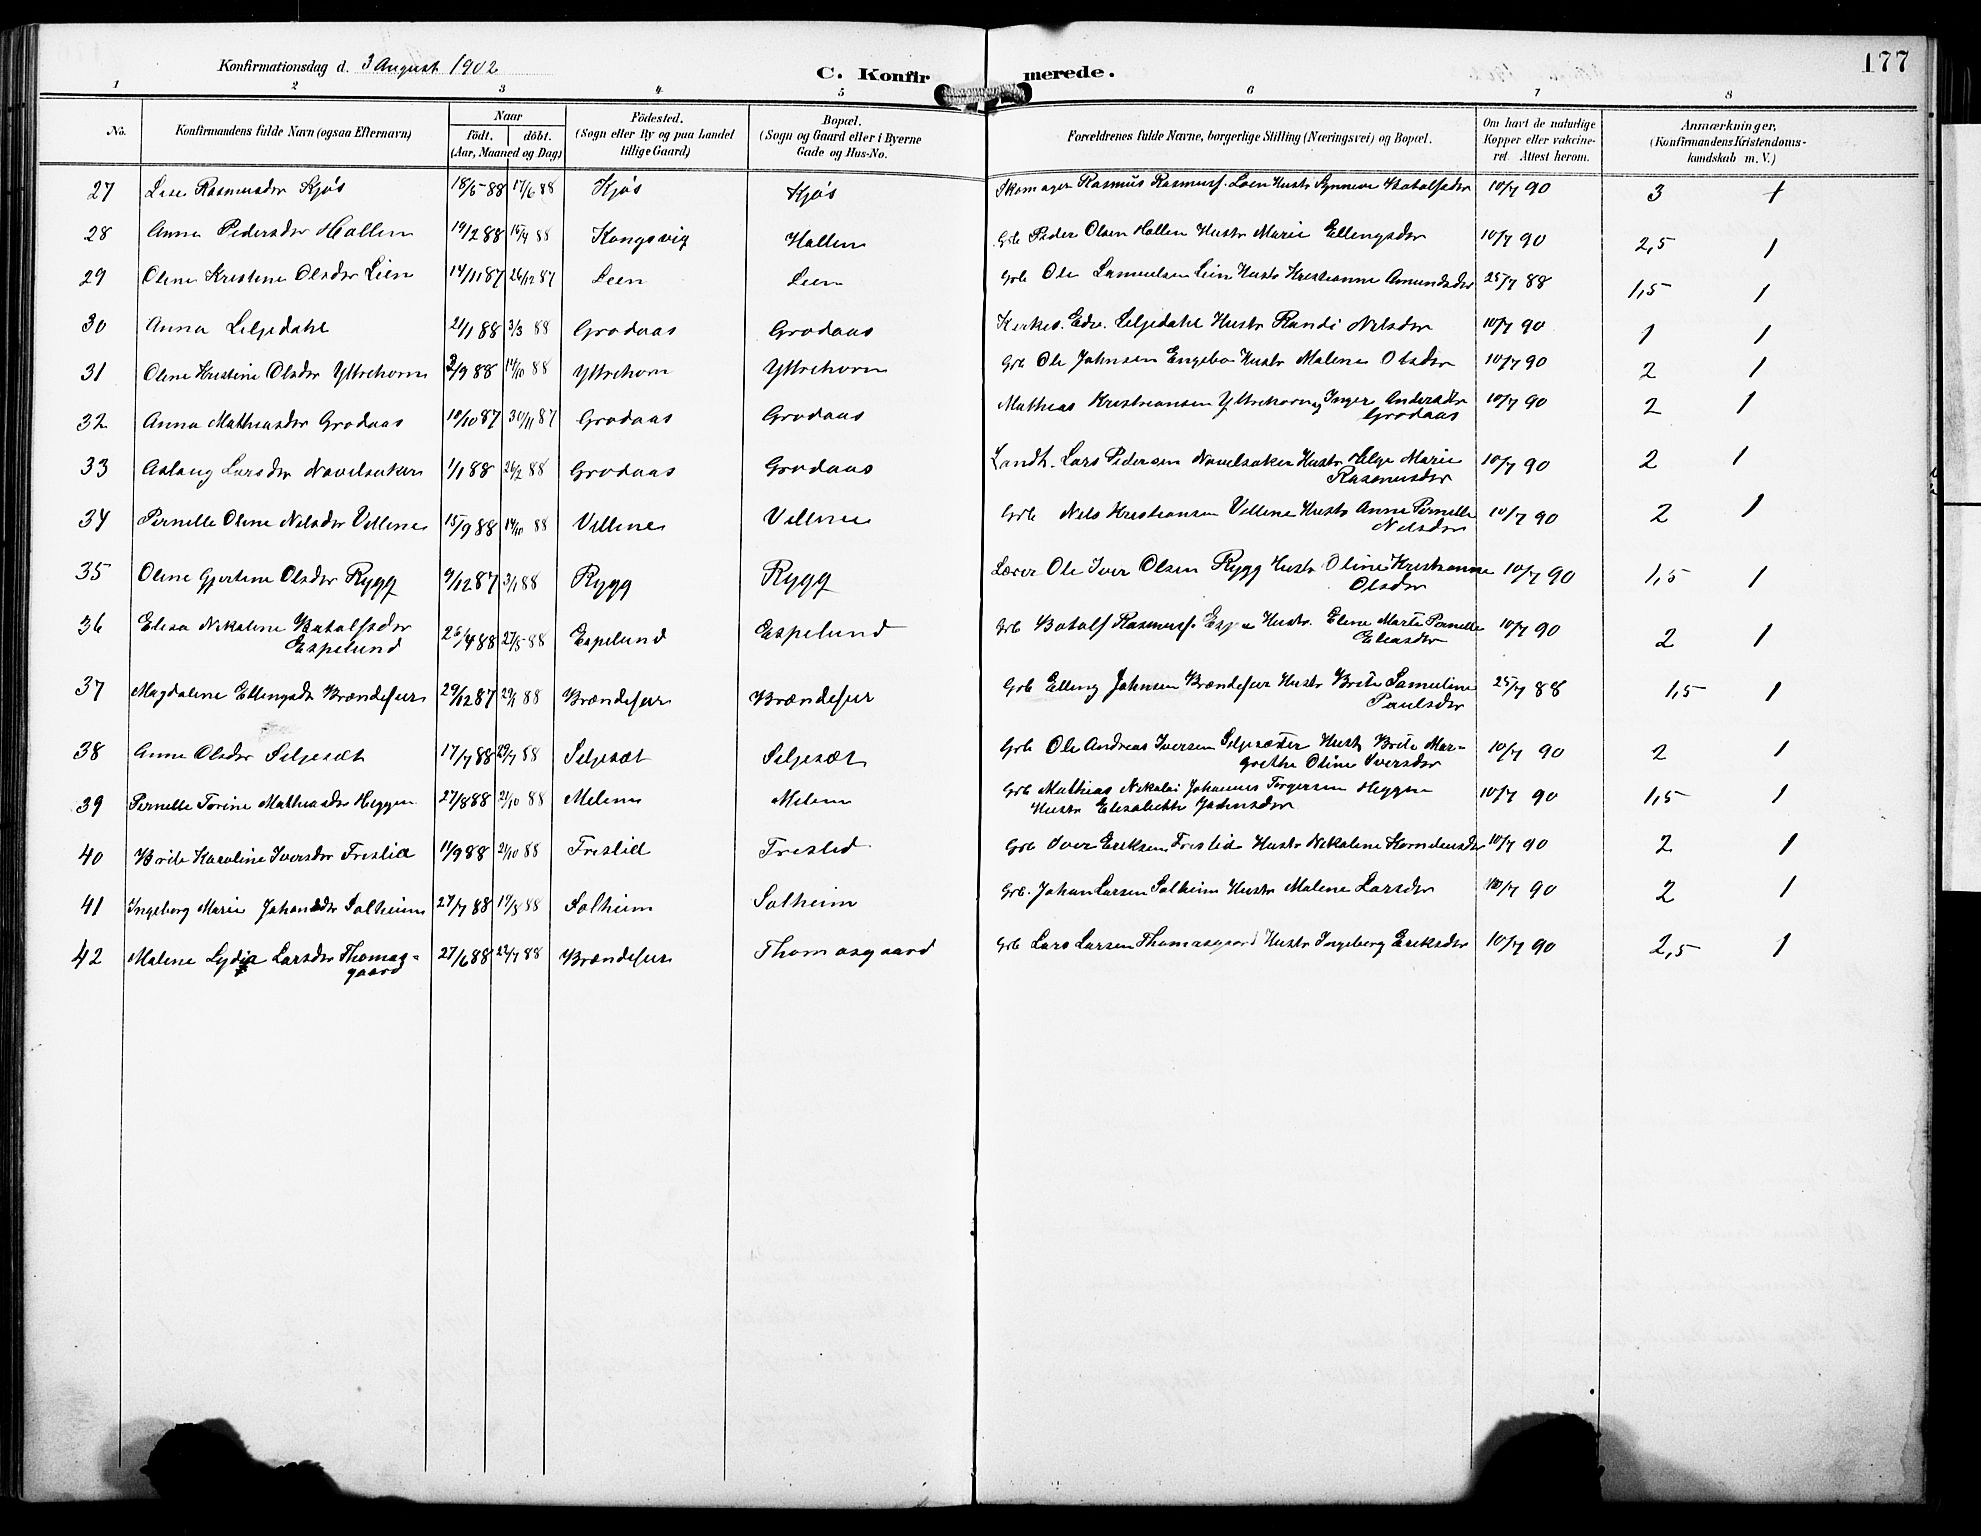 177
Konfirmationsdag d. 3 August 1902
C. Konfirmerede.
1 2 3 4 5 6 7 8
No. Konfirmandens fulde Navn (ogsaa Efternavn) Naar födt. döbt. (Aar, Maaned og Dag) Födested. (Sogn eller By og paa Landet tillige Gaard) Bopæl. (Sogn og Gaard eller i Byerne Gade og Hus-No. Forældrenes fulde Navne, borgerlige Stilling (Næringsvei) og Bopæl. Om havt de naturlige Kopper eller vakcineret. Attest herom. Anmærkninger, (Konfirmandens Kristendomskundskab m. V.)
27 Rasmusdr Kjøs 18/5 88 17/6 88 Kjøs Kjøs Skomager Rasmus Rasmuss. Loen Hustr Synneve Botolfsdr 10/7 90 3 1
28 Anna Pedersdr Hallen 19/2 88 15/4 88 Kongsvig Hallen Grb Peder Olsen Hallen Hustr Marie Ellingsdr 10/7 90 2,5 1
29 Oline Kristine Olsdr Lien 14/11 87 26/12 87 Lien Lien Grb Ole Samuelsen Lien Hustr Kristianne Amundsdr 25/7 88 1,5 1
30 Anna Liljedahl 21/1 88 3/3 88 Grodaas Grodaas Kirkes. Edv. Liljedahl Hustr Randi Nilsdr 10/7 90 1 1
31 Oline Kristine Olsdr Yttrehorn 2/9 88 14/10 88 Yttrehorn Yttrehorn Grb Ole Johnsen Engebø Hustr Malene Olsdr 10/7 90 2 1
32 Anna Mathiasdr Grodaas 10/10 87 30/11 87 Grodaas Grodaas Mathias Kristiansen Yttrehorn Inger Andersdr Grodaas 10/7 90 2 1
33 Aslaug Larsdr Navelsaker 1/1 88 26/2 88 Grodaas Grodaas Landh. Lars Pedersen Navelsaker Hustr Helge Marie Rasmusdr 10/7 90 2 1
34 Pernille Oline Nilsdr Villene 15/9 88 14/10 88 Villene Villene Grb Nils Kristiansen Villene Hustr Anne Pernille Nilsdr 10/7 90 2 1
35 Oline Gjertine Olsdr Rygg 9/12 87 3/1 88 Rygg Rygg Lærer Ole Iver Olsen Rygg Hustr Oline Kristianne Olsdr 10/7 90 1,5 1
36 Elisa Nikoline Botolfsdr Espelund 26/4 88 27/5 88 Espelund Espelund Grb Botolf Rasmuss. Hustr. Eline Marte Pernille Eliasdr 10/7 90 2 1
37 Magdalene Ellingsdr Brændefur 29/12 87 29/1 88 Brændefur Brændefur Grb Elling Johnsen Brændefur Hustr Brite Samueline Paulsdr 25/7 88 1,5 1
38 Anne Olsdr Siljesæt 17/7 88 29/7 88 Siljesæt Siljesæt Grb Ole Andreas Iversen Siljesæter Hustr Brite Margrethe Oline Iversdr 10/7 90 2 1
39 Pernille Torine Mathiasdr Heggen 27/8 88 21/10 88 Melene Melene Grb Mathias Nikolai Johannes Torgersen Heggen Hustr Elisabethe Johnsdr 10/7 90 1,5 1
40 Brite Karoline Iversdr Frislid 11/9 88 21/10 88 Frislid Frislid Grb Iver Eriksen Frislid Hustr Nikoline 10/7 90 2 1
41 Ingeborg Marie Johansdr Solheim 27/7 88 19/8 88 Solheim Solheim Grb. Johan Larsen Solheim Hustr Malene Larsdr 10/7 90 2 1
42 Malene Lydia Larsdr Thomasgaard 27/6 88 22/7 88 Brændefur Thomasgaard Grb Lars Larsen Thomasgaard Hustr Ingeborg Eriksdr 10/7 90 2,5 1